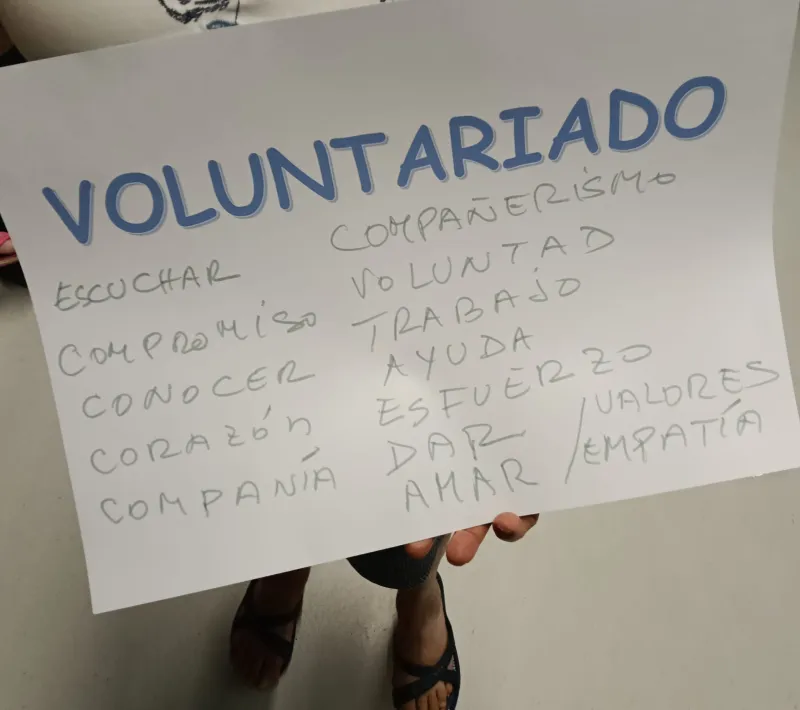 VOLUNTARIADO
ESCUCHAR
COMPROMISO
CONOCER
CORAZÓN
COMPANÍA
COMPAÑERISMO
VOLUNTAD
TRABAJO
AYUDA
ESFUERZO
DAR
AMAR
/VALORES
/EMPATÍA